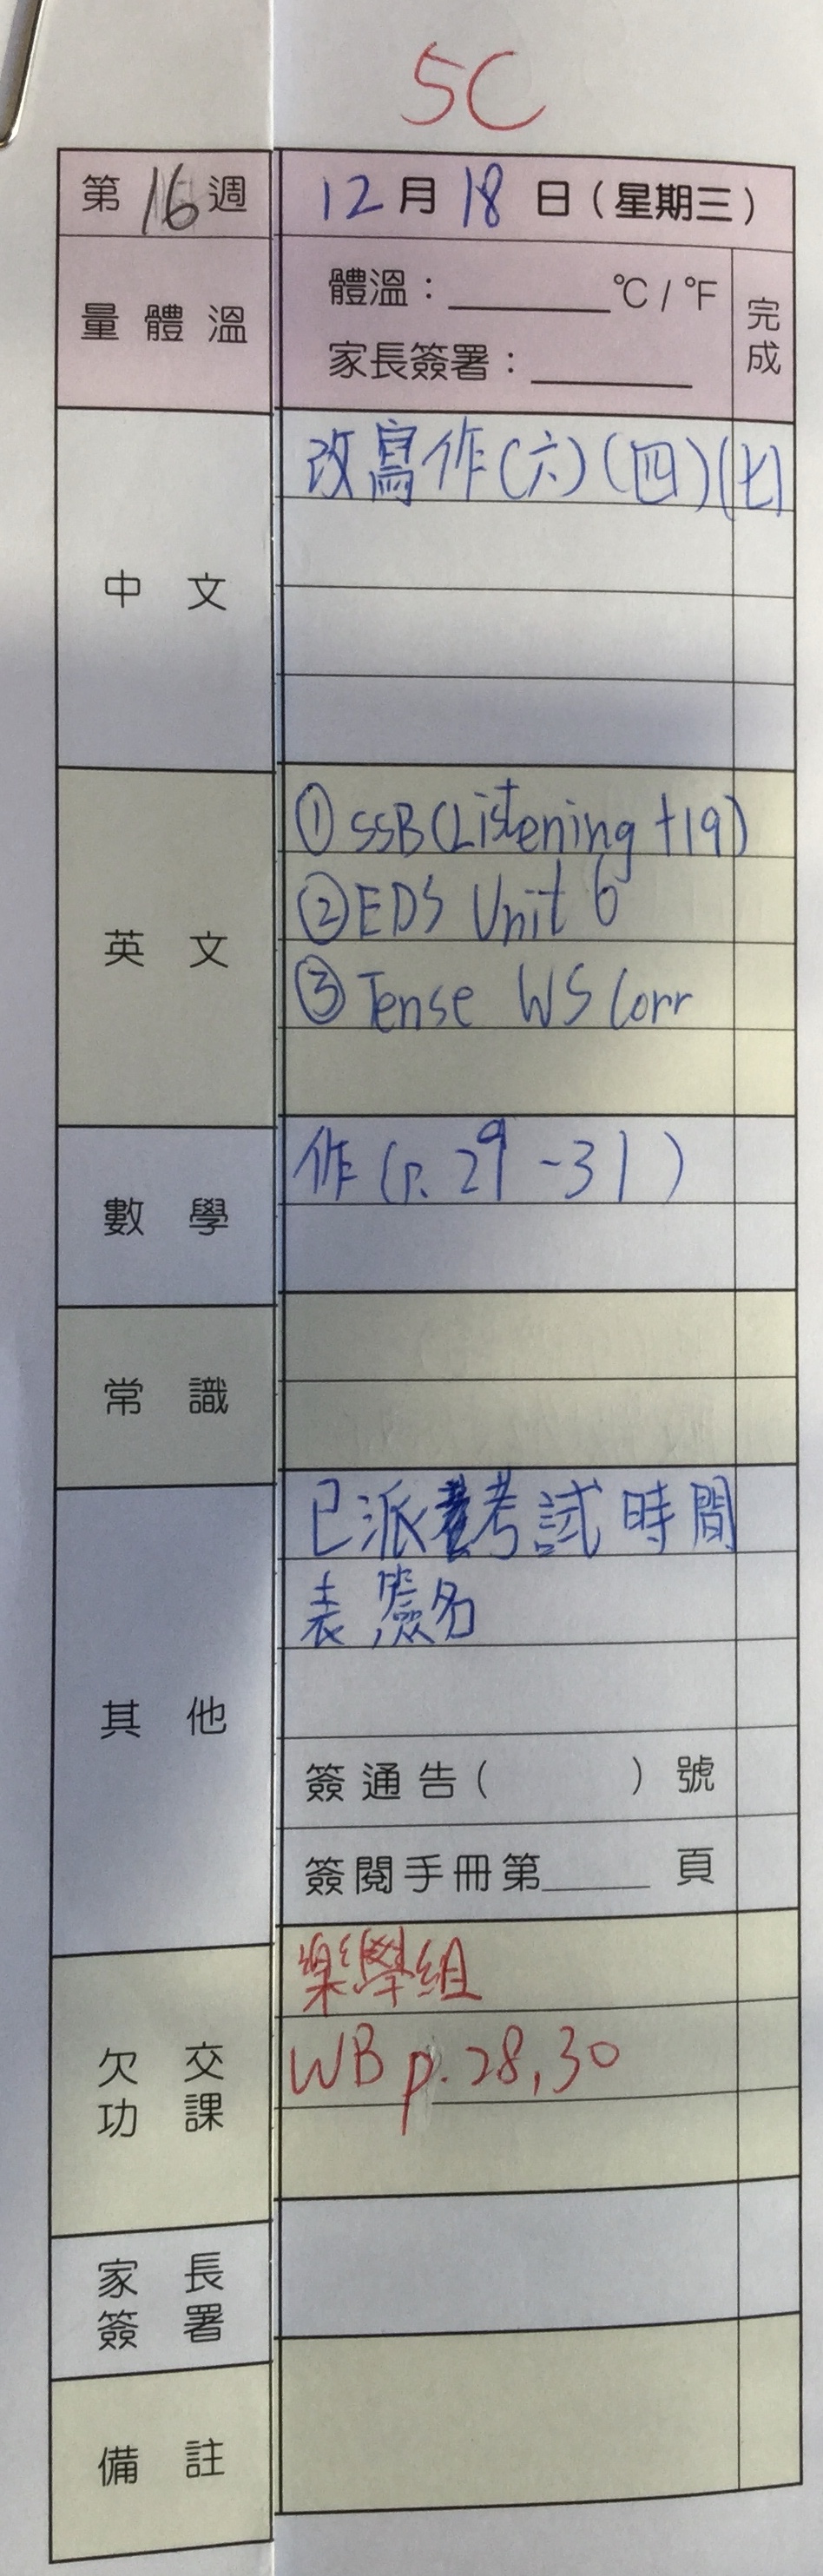 5C
第16週 12月18日(星期三)
量體溫 體溫：______°C / °F 完成
家長簽署：______
中文 改寫作(六)(四)(七)
英文 ① SSB(Listening +19)
② EDS Unit 6
③ Tense WS Corr
數學 作(p. 29-31)
常識
其他 已派考試時間
表簽名
簽通告( )號
簽閱手冊第____頁
欠交功課 樂學組
WB p. 28, 30
家長簽署
備註